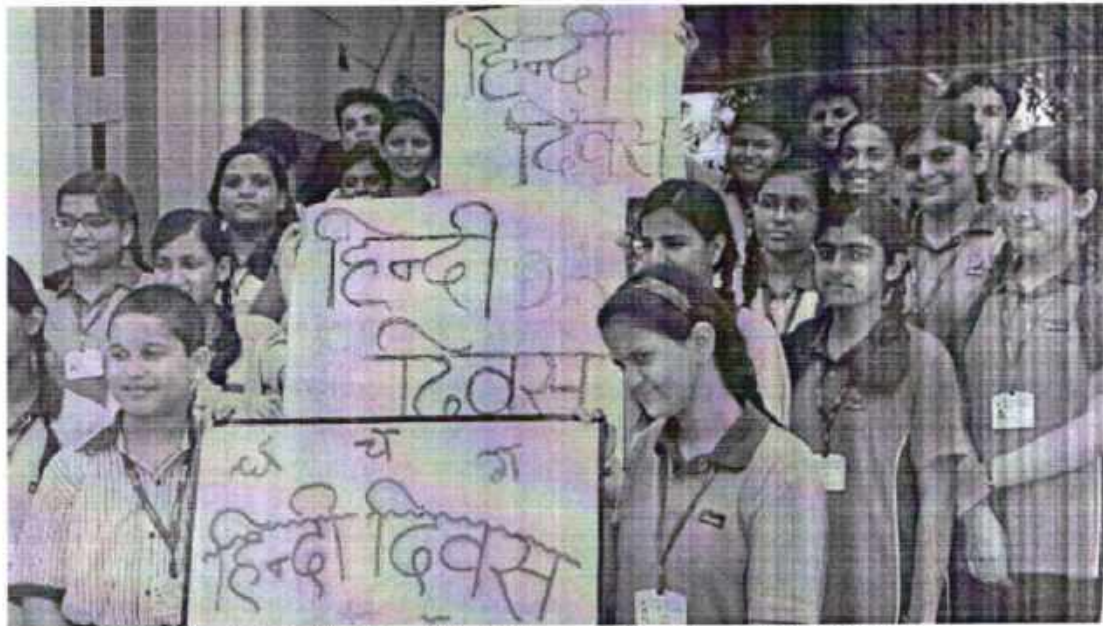 हिन्दी
दिवस
हिन्दी
दिवस
घ च ग
हिन्दी दिवस